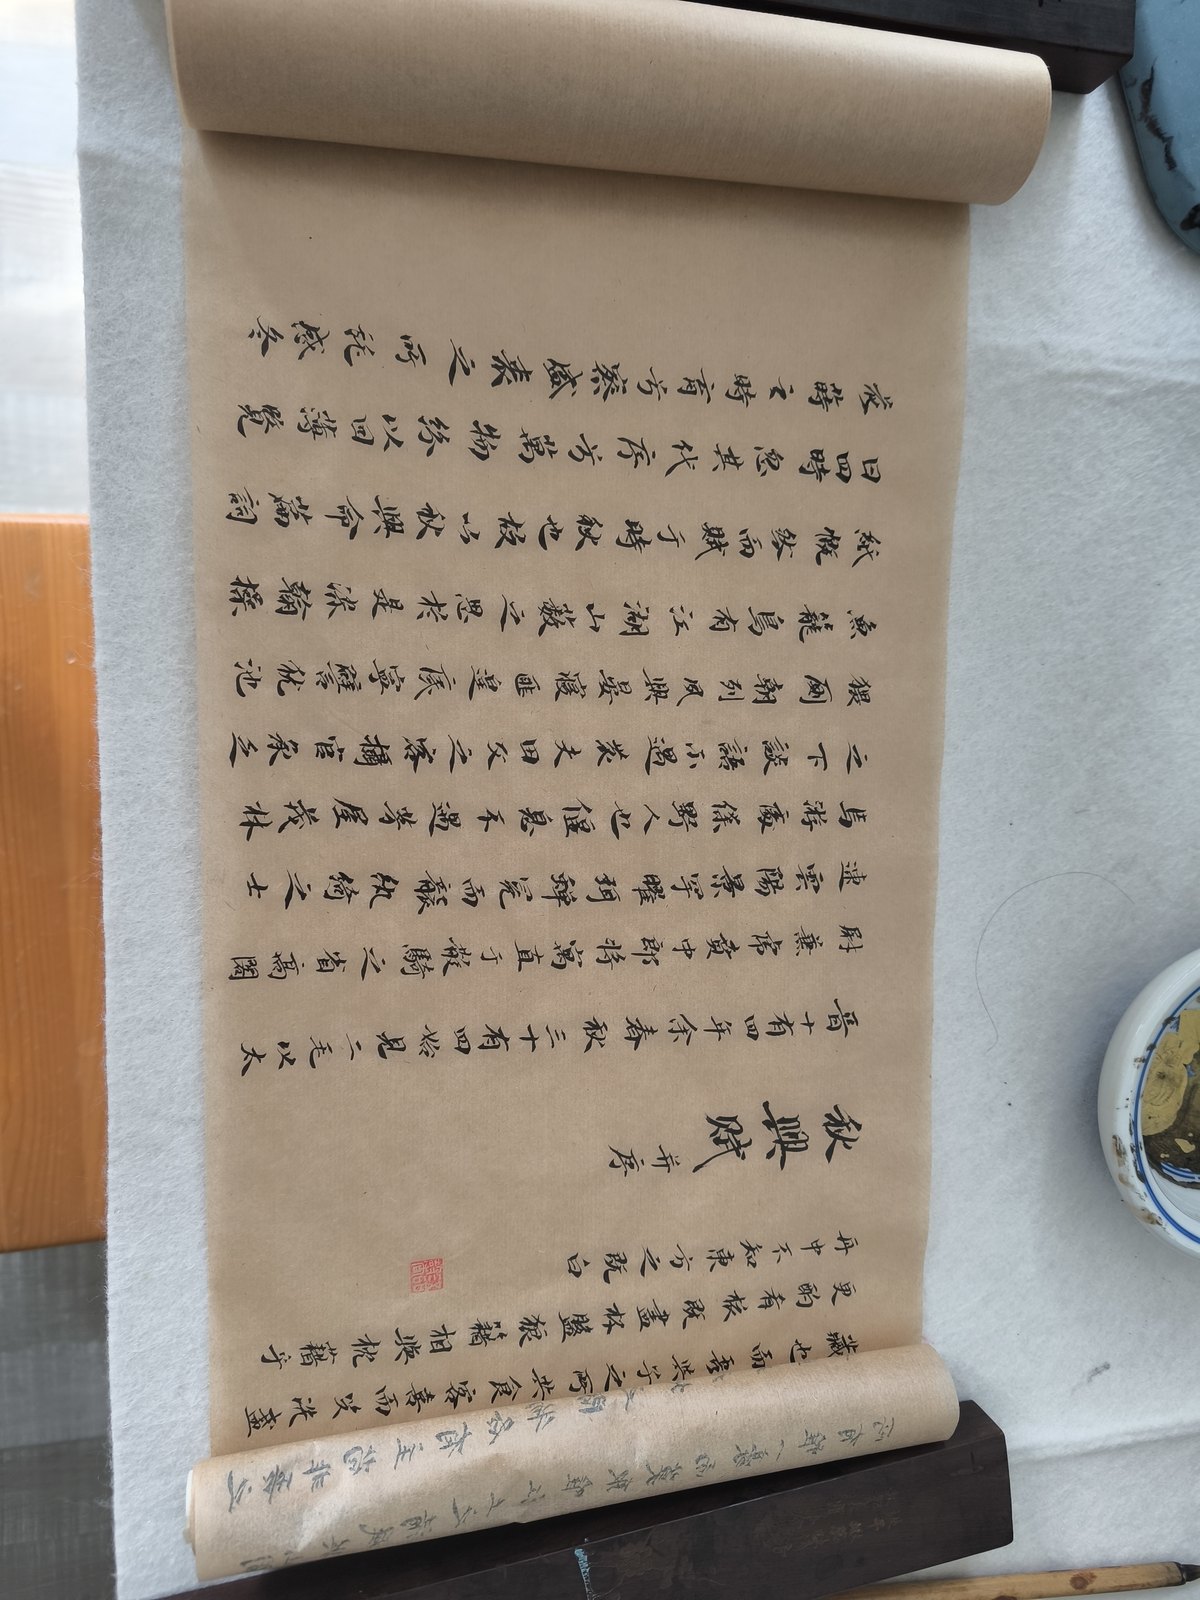 藏也而吾與子之所共食客喜而笑洗盞
更酌肴核既盡杯盤狼籍相與枕藉乎
舟中不知東方之既白
秋興賦 并序
晉十有四年余春秋三十有四始見二毛以太
尉兼虎賁中郎將寓直于散騎之省高閣
連雲陽景罕曜珥蟬冕而襲紈綺之士
焉游處僕野人也偃息不過茅屋茂林
之下談話不過農夫田父之客攝官承乏
猥厠朝列夙興晏寢匪遑底寧譬猶池
魚籠鳥有江湖山藪之思於是染翰操
紙慨然而賦于時秋也故以秋興命篇詞
曰四時忽其代序兮萬物紛以回薄覽
花蒔之時育兮察盛衰之所託感冬